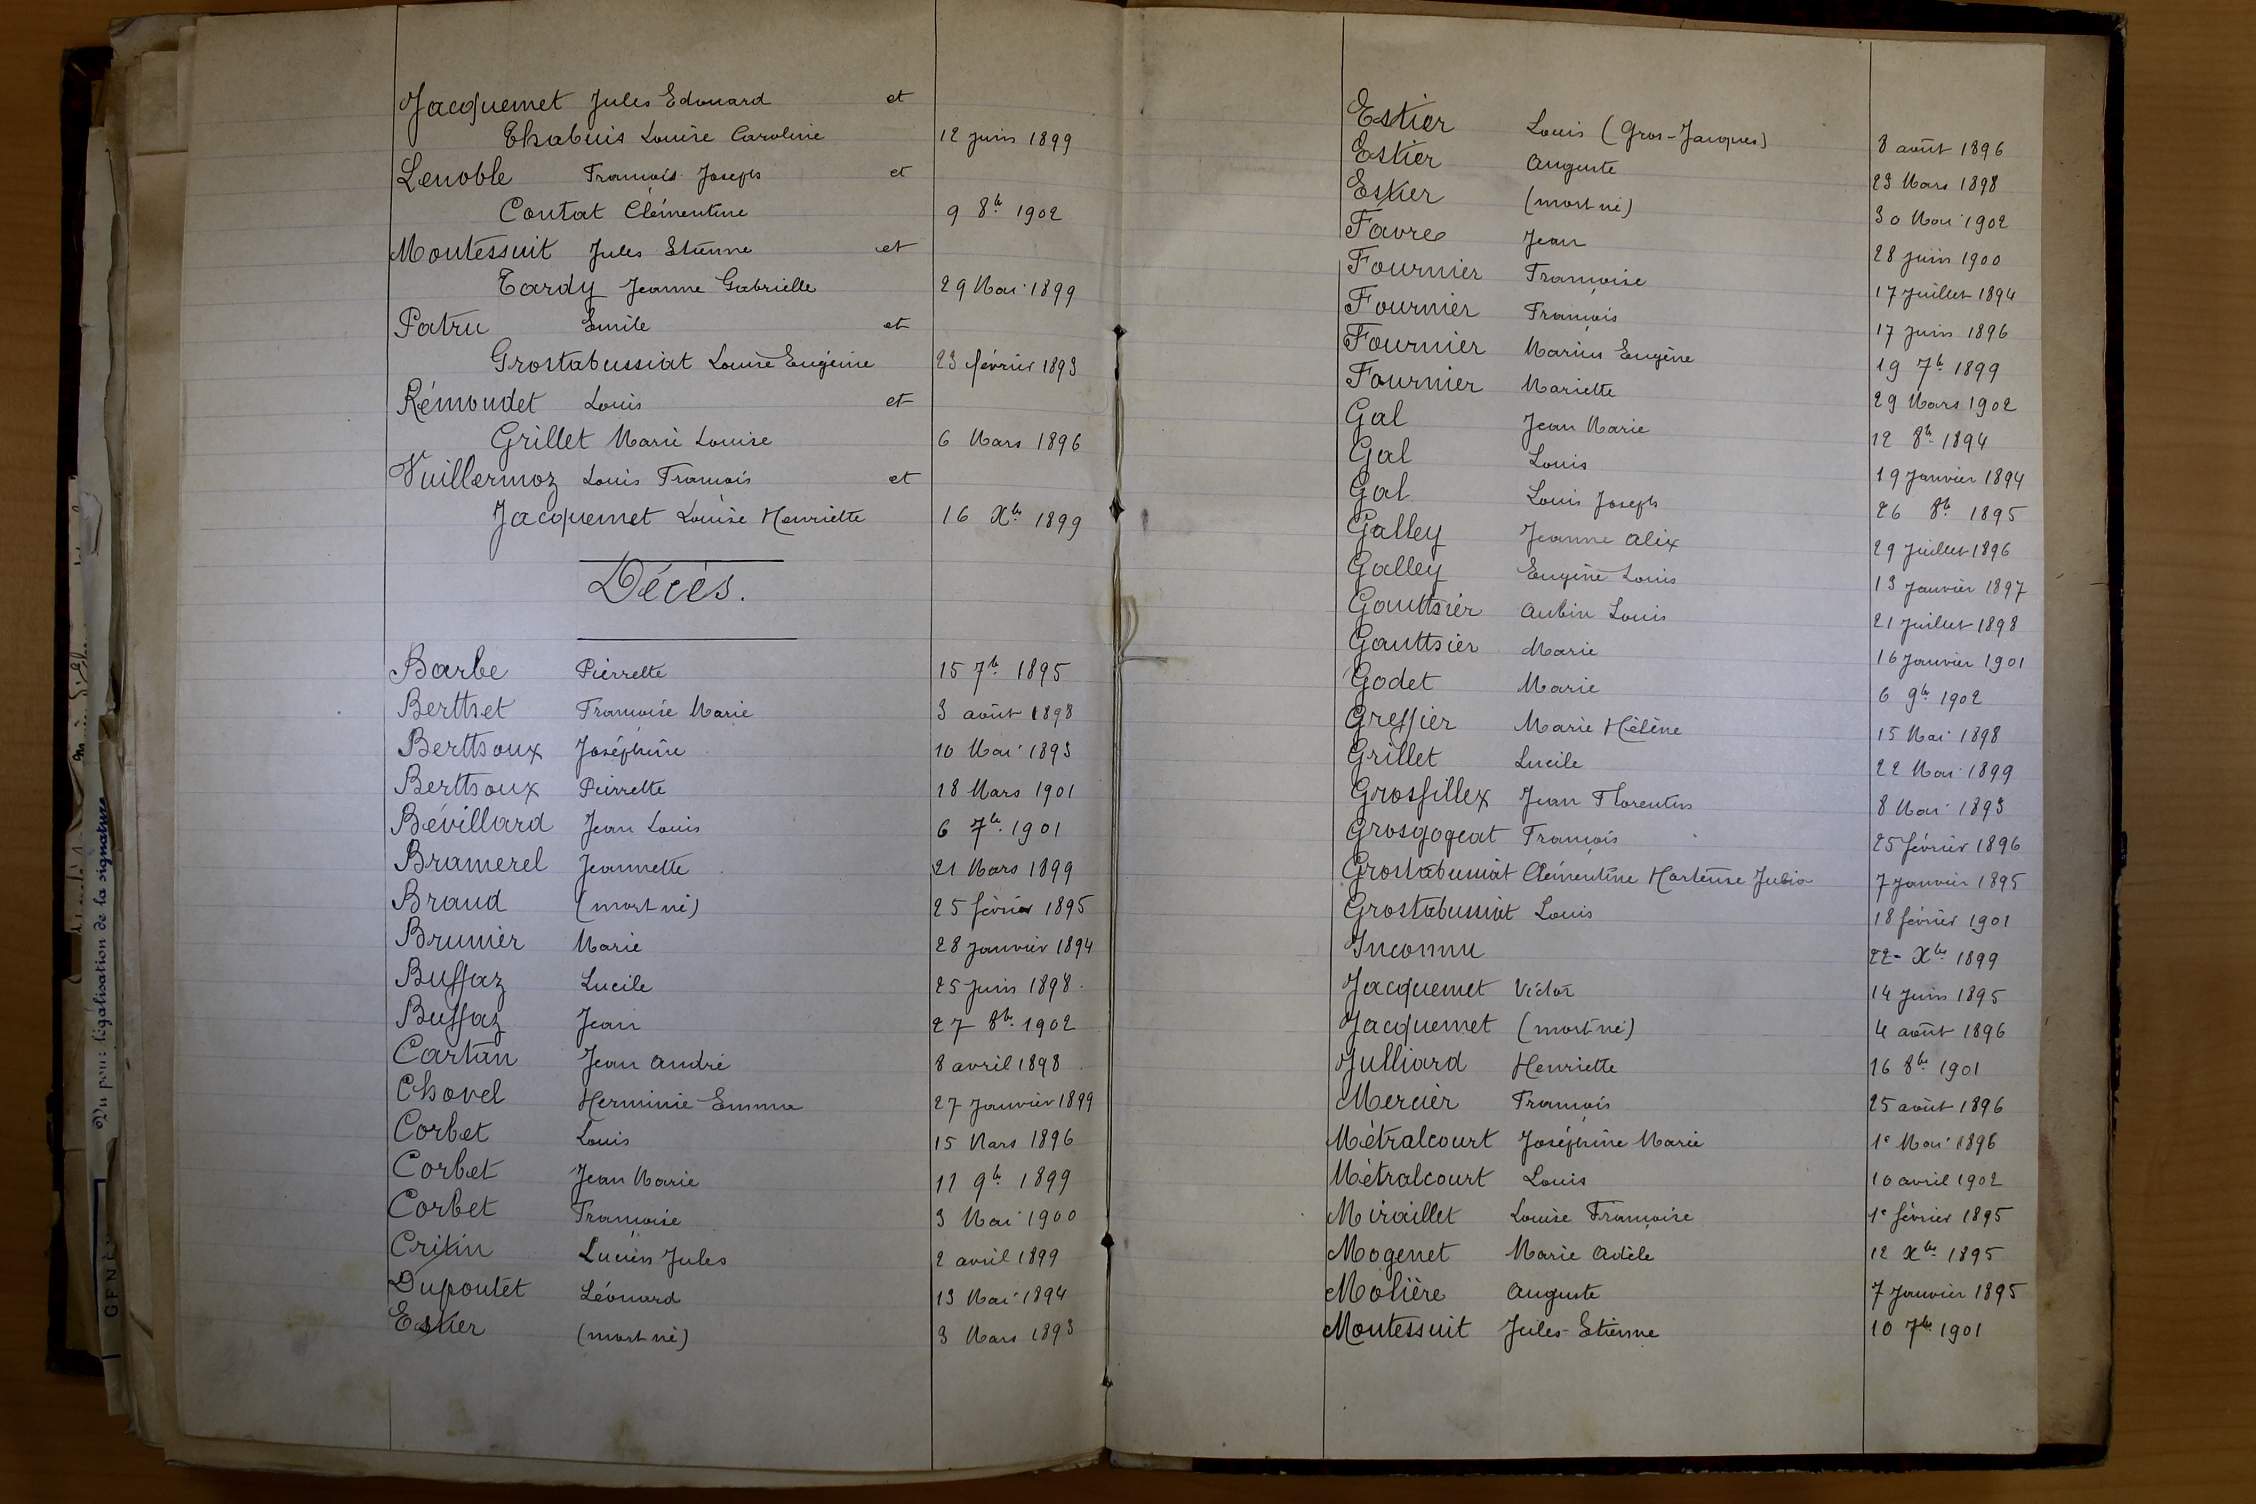 Jacquemet Jules Edouard et
Chabuis Louise Caroline 12 juin 1899
Lenoble François Joseph et
Contat Clémentine 9 8bre 1902
Montessuit Jules Etienne et
Tardy Jeanne Gabrielle 29 Mai 1899
Patru Emile et
Grostabussiat Louise Eugénie 23 février 1893
Rémondet Louis et
Grillet Marie Louise 6 Mars 1896
Vuillermoz Louis François et
Jacquemet Louise Henriette 16 Xbre 1899
Décès.
Barbe Pierrette 15 7bre 1895
Berthet Françoise Marie 3 août 1898
Berthoux Joséphine 10 Mai 1893
Berthoux Pierrette 18 Mars 1901
Bévillard Jean Louis 6 7bre 1901
Bramerel Jeannette 21 Mars 1899
Braud (mort né) 25 février 1895
Brunier Marie 28 janvier 1894
Buffaz Lucile 25 juin 1898
Buffaz Jean 27 8bre 1902
Cartan Jean André 8 avril 1898
Chovel Herminie Emma 27 janvier 1899
Corbet Louis 15 Mars 1896
Corbet Jean Marie 11 9bre 1899
Corbet Françoise 3 Mai 1900
Critin Lucien Jules 2 avril 1899
Dupoutet Léonard 13 Mai 1894
Estier (mort né) 3 Mars 1893
Estier Louis (Gros-Jacques) 8 août 1896
Estier Auguste 23 Mars 1898
Estier (mort né) 30 Mai 1902
Favre Jean 28 juin 1900
Fournier Françoise 17 juillet 1894
Fournier François 17 juin 1896
Fournier Marius Eugène 19 7bre 1899
Fournier Mariette 29 Mars 1902
Gal Jean Marie 12 8bre 1894
Gal Louis 19 janvier 1894
Gal Louis Joseph 26 8bre 1895
Galley Jeanne Alix 29 juillet 1896
Galley Eugène Louis 13 janvier 1897
Gauthier Aubin Louis 21 juillet 1898
Gauthier Marie 16 janvier 1901
Godet Marie 6 9bre 1902
Greffier Marie Hélène 15 Mai 1898
Grillet Lucile 22 Mai 1899
Grosfillex Jean Florentin 8 Mai 1893
Grosgogeat François 25 février 1896
Grostabussiat Clémentine Hortense Julia 7 janvier 1895
Grostabussiat Louis 18 février 1901
Inconnu 22 - Xbre 1899
Jacquemet Victor 14 juin 1895
Jacquemet (mort né) 4 août 1896
Julliard Henriette 16 8bre 1901
Mercier François 25 août 1896
Métralcourt Joséphine Marie 1e Mai 1896
Métralcourt Louis 10 avril 1902
Miraillet Louise Françoise 1e février 1895
Mogenet Marie Adèle 12 Xbre 1895
Molière Auguste 7 janvier 1895
Montessuit Jules-Etienne 10 7bre 1901
Vu pour légalisation de la signature